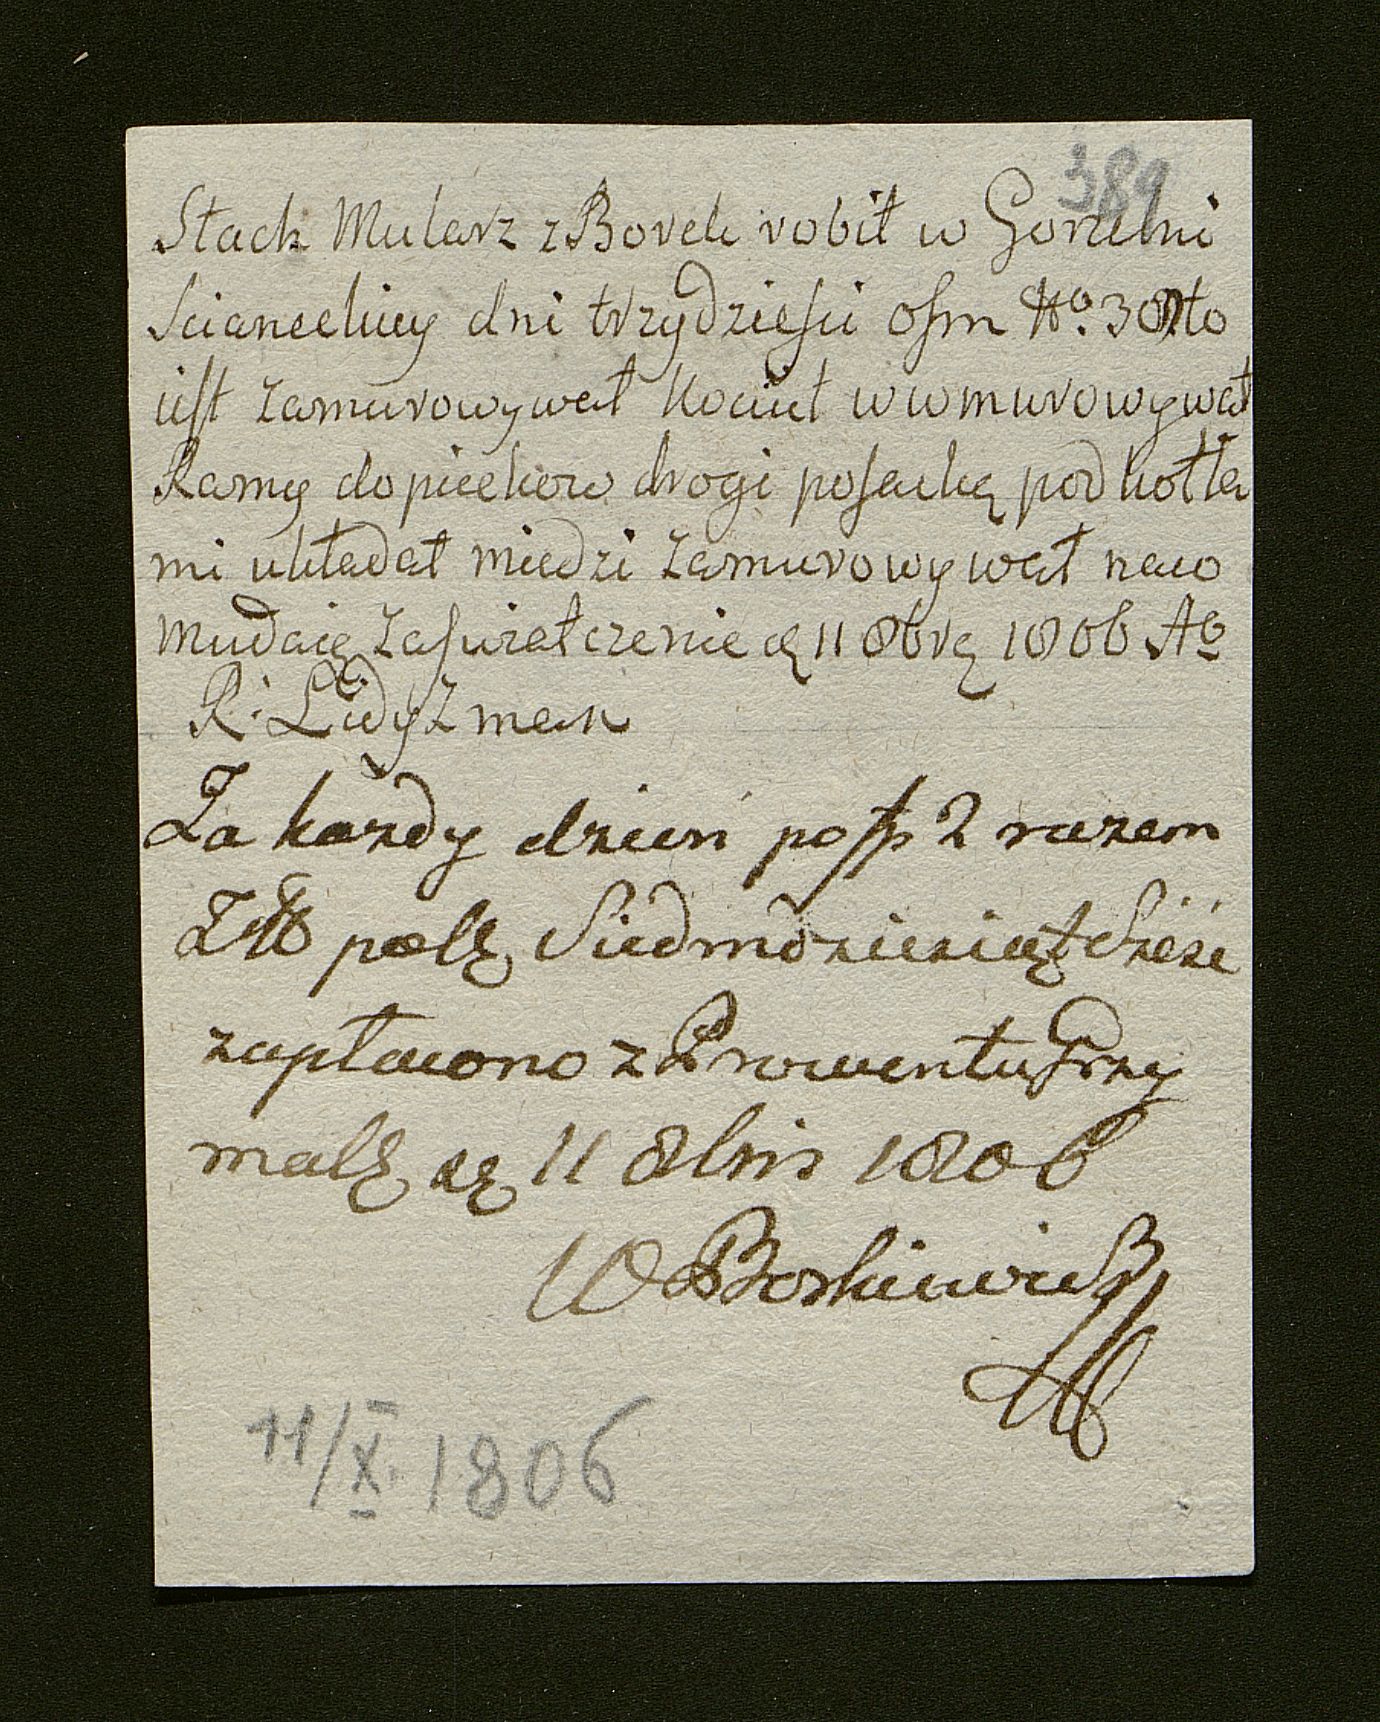 389
Stach Mularz z Borek robił w Gorzelni
Scianeckiey dni trzydziesci osm No. 38 to
iest zamurowywał Kocieł wwmurowywał
Ramy do piecków drogi posacką pod kotła
mi układał miedzi zamurowywał naco
mudaię zaswiatczenie dę 11 8brą 1806 Ao
R: Lidyzman
Za kazdy dzień po fp 2 razem
Złł polą Siedmdziesiąt szesc
zapłacono z Prowentu Grzy
malą dę 11 8bris 1806
W Borkiewicz
11/X 1806